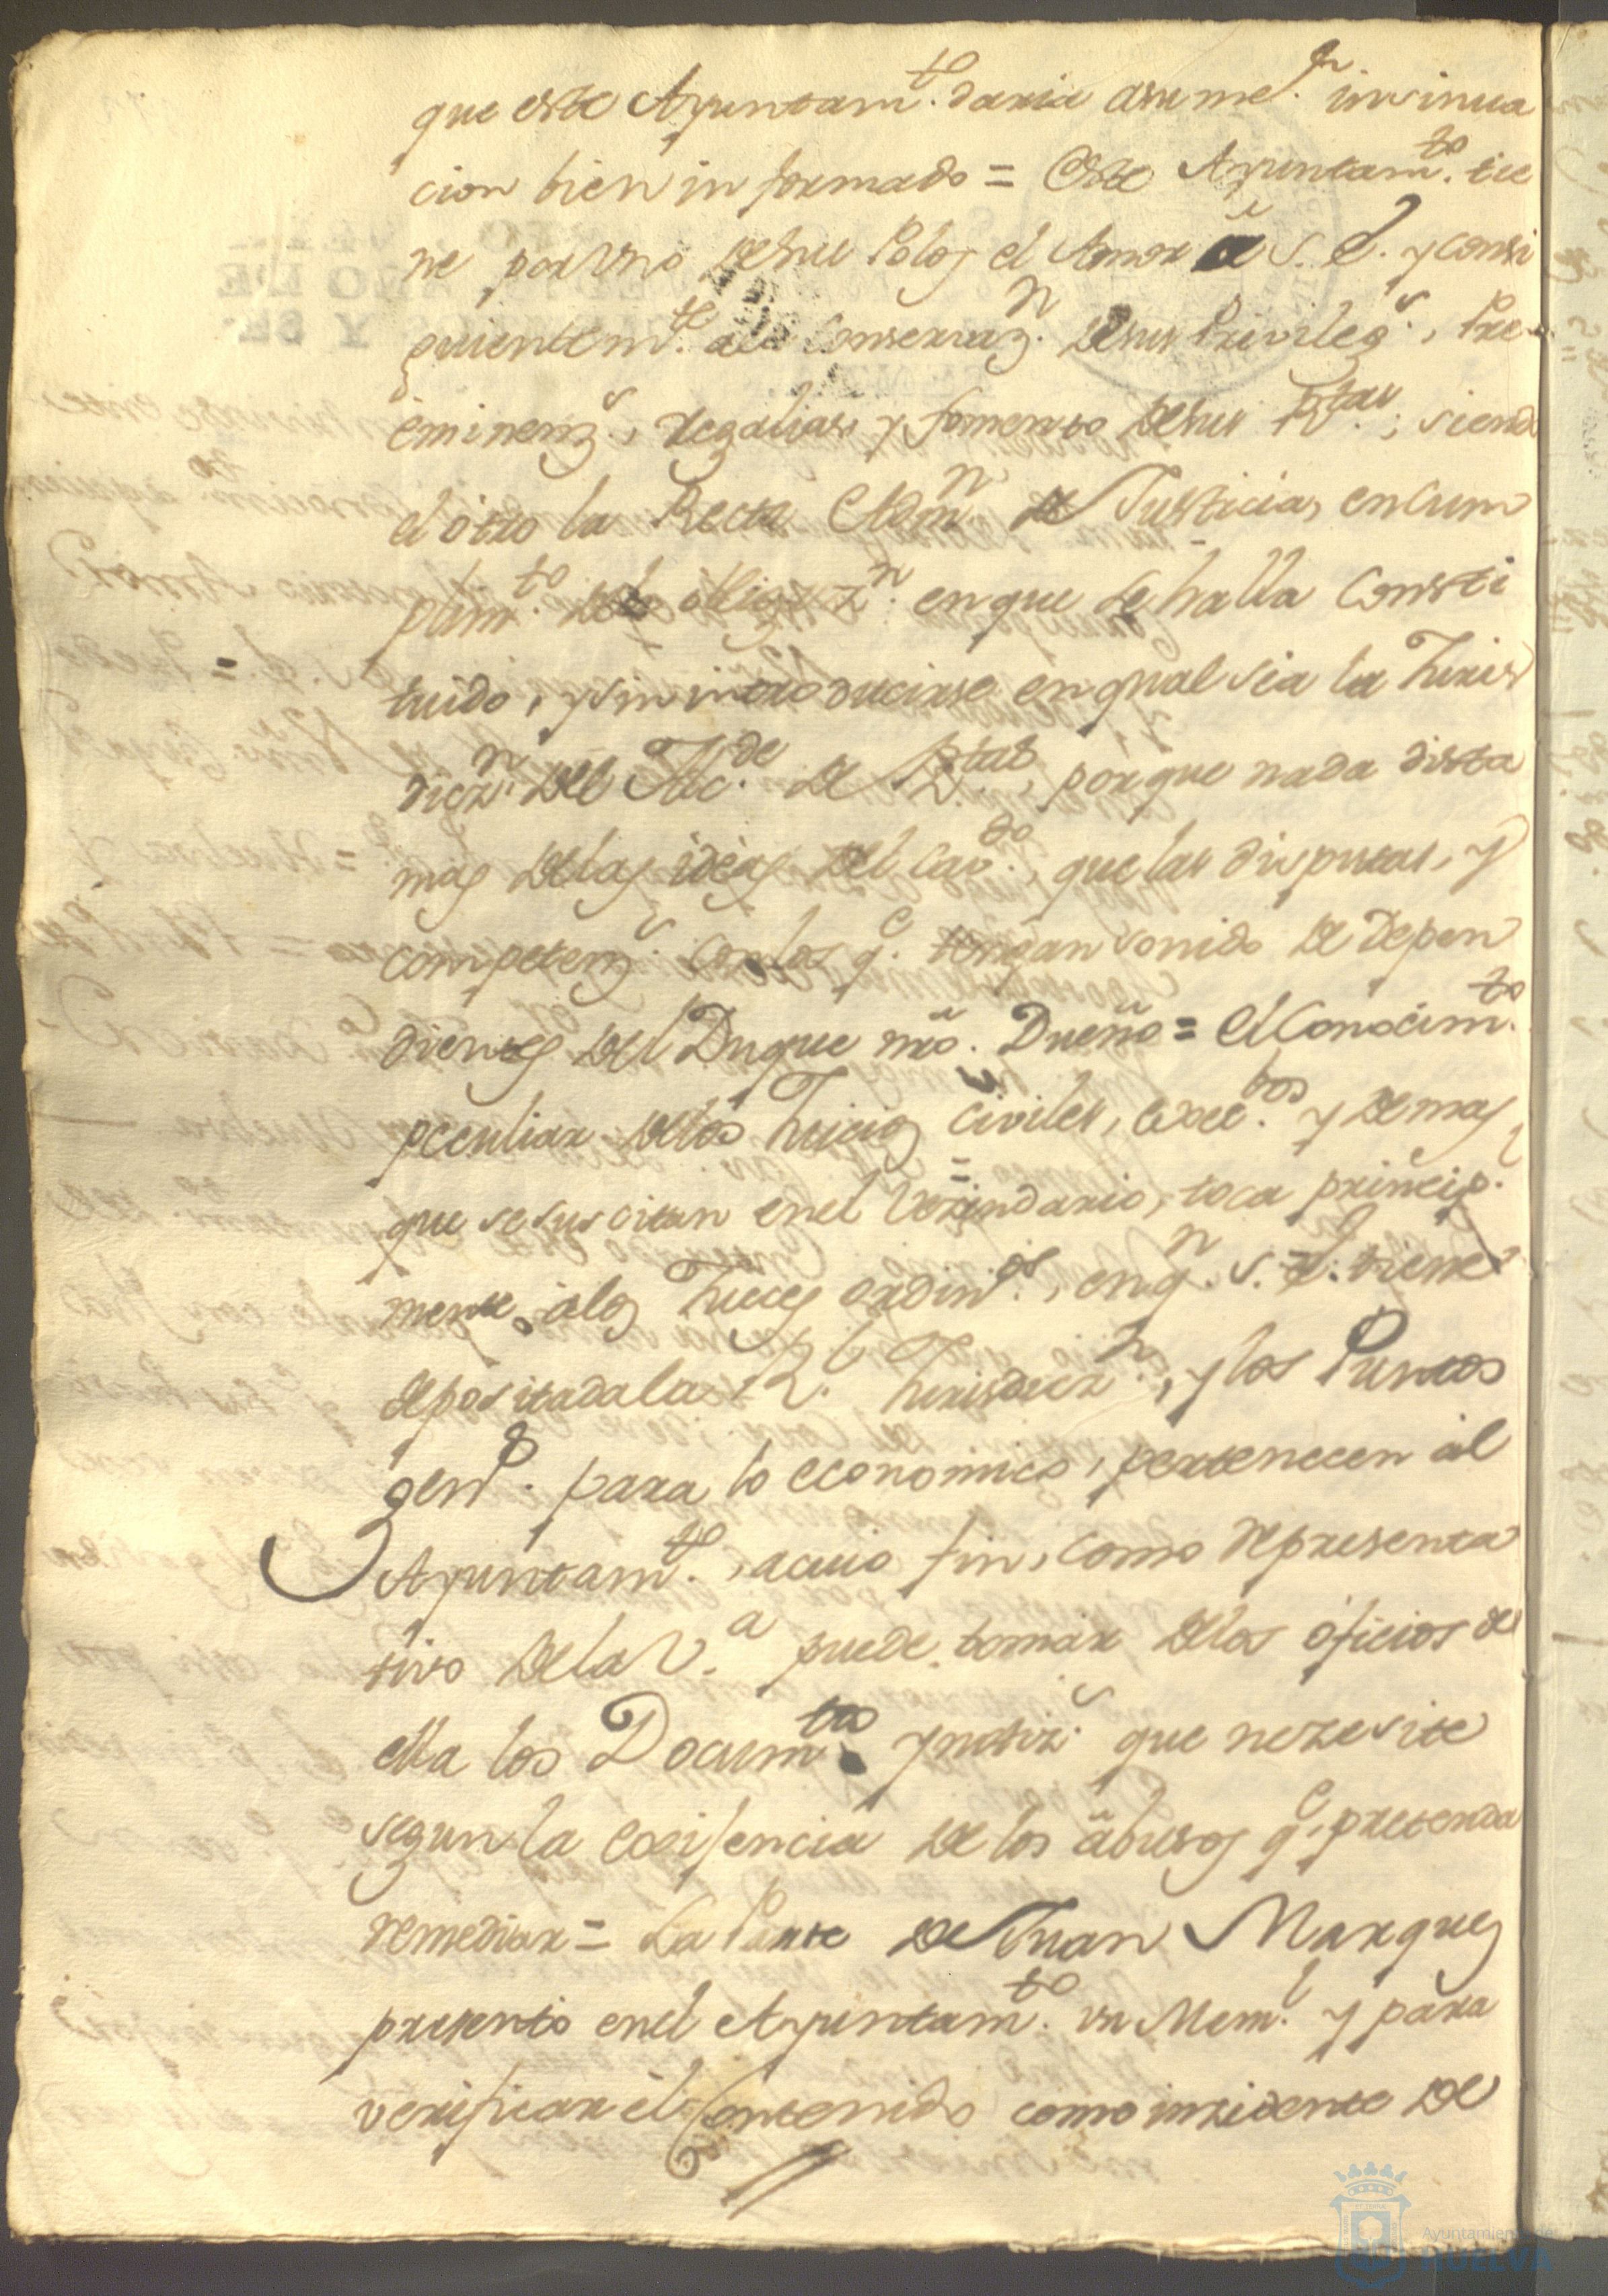 que este Ayuntam.to daria asu me.r insinua
cion bien informado = Este Ayuntam.to tie
ne por Uno de sus Polos el Amor a S. E. y consi
guientem.te ala Conservaz.n de sus Privileg.s, Pre-
eminenz.s, regalias y fomento de sus R.tas; siendo
el otro la Recta Adm.n de Justicia, en cum
plim.to de la obligaz.n en que se halla Consti
tuido, y sin introducirse en qual sia la Juris
dicz.n del Alc.de de R.tas, porque nada dista
mas delas ideas del Cav.do, que las disputas, y
competenz.s con los q.e tengan sonido de Depen
dientes del Duque nrõ. Dueño = El Conocim.to
peculiar delos Juicios civiles, execu.bos y demas
que se suscitan enel Vezindario, toca princip.l
mente, alos Jueces ordin.os, en q.n S. E. tiene
depositada la R.l Jurisdicz.n, y los Puntos
gen.s para lo economico, pertenecen al
Ayuntam.to, acuio fin, como representa
tivo dela V.a puede tomar delos oficios de
ella los Docum.tos y notiz.s que nezesite
segun la exijencia de los abusos q.e pretenda
remediar = La Parte de Juan Marques
presentó enel Ayuntam.to un Mem.l y para
verificar el Contenido como inzidente de
Ayuntamiento de
HUELVA